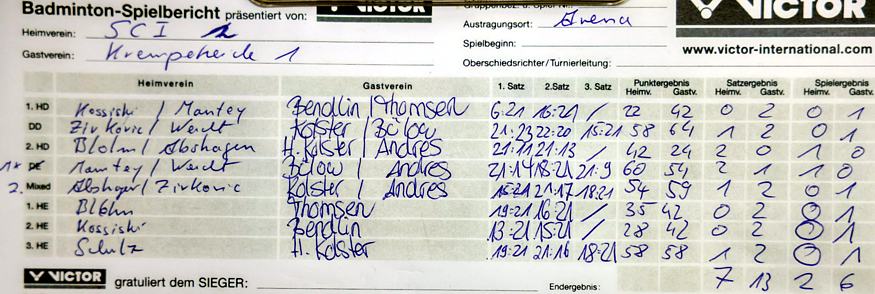 Badminton-Spielbericht präsentiert von: VICTOR
VICTOR
Heimverein: SCI 2
Austragungsort: Arena
Gastverein: Krempeheide 1
Spielbeginn:
www.victor-international.com
Oberschiedsrichter / Turnierleitung:
Heimverein Gastverein 1. Satz 2. Satz 3. Satz Punktergebnis Heimv. Gastv. Satzergebnis Heimv. Gastv. Spielergebnis Heimv. Gastv.
1. HD Kossiski / Mantey Bendlin / Thomsen 6:21 16:21 / 22 42 0 2 0 1
DD Zivkovic / Weidt Kolster / Bülow 21:23 22:20 15:21 58 64 1 2 0 1
2. HD Blohm / Abshagen H. Kolster / Andres 21:11 21:13 / 42 24 2 0 1 0
1. DE Mantey / Weidt Bülow / Andres 21:14 18:21 21:9 60 54 2 1 1 0
2. Mixed Abshagen / Zivkovic Kolster / Andres 15:21 21:17 18:21 54 59 1 2 0 1
1. HE Blohm Thomsen 19:21 16:21 / 35 42 0 2 0 1
2. HE Kossiski Bendlin 13:21 15:21 / 28 42 0 2 0 1
3. HE Schulz H. Kolster 19:21 21:16 18:21 58 58 1 2 0 1
VICTOR gratuliert dem SIEGER: Endergebnis: 7 13 2 6